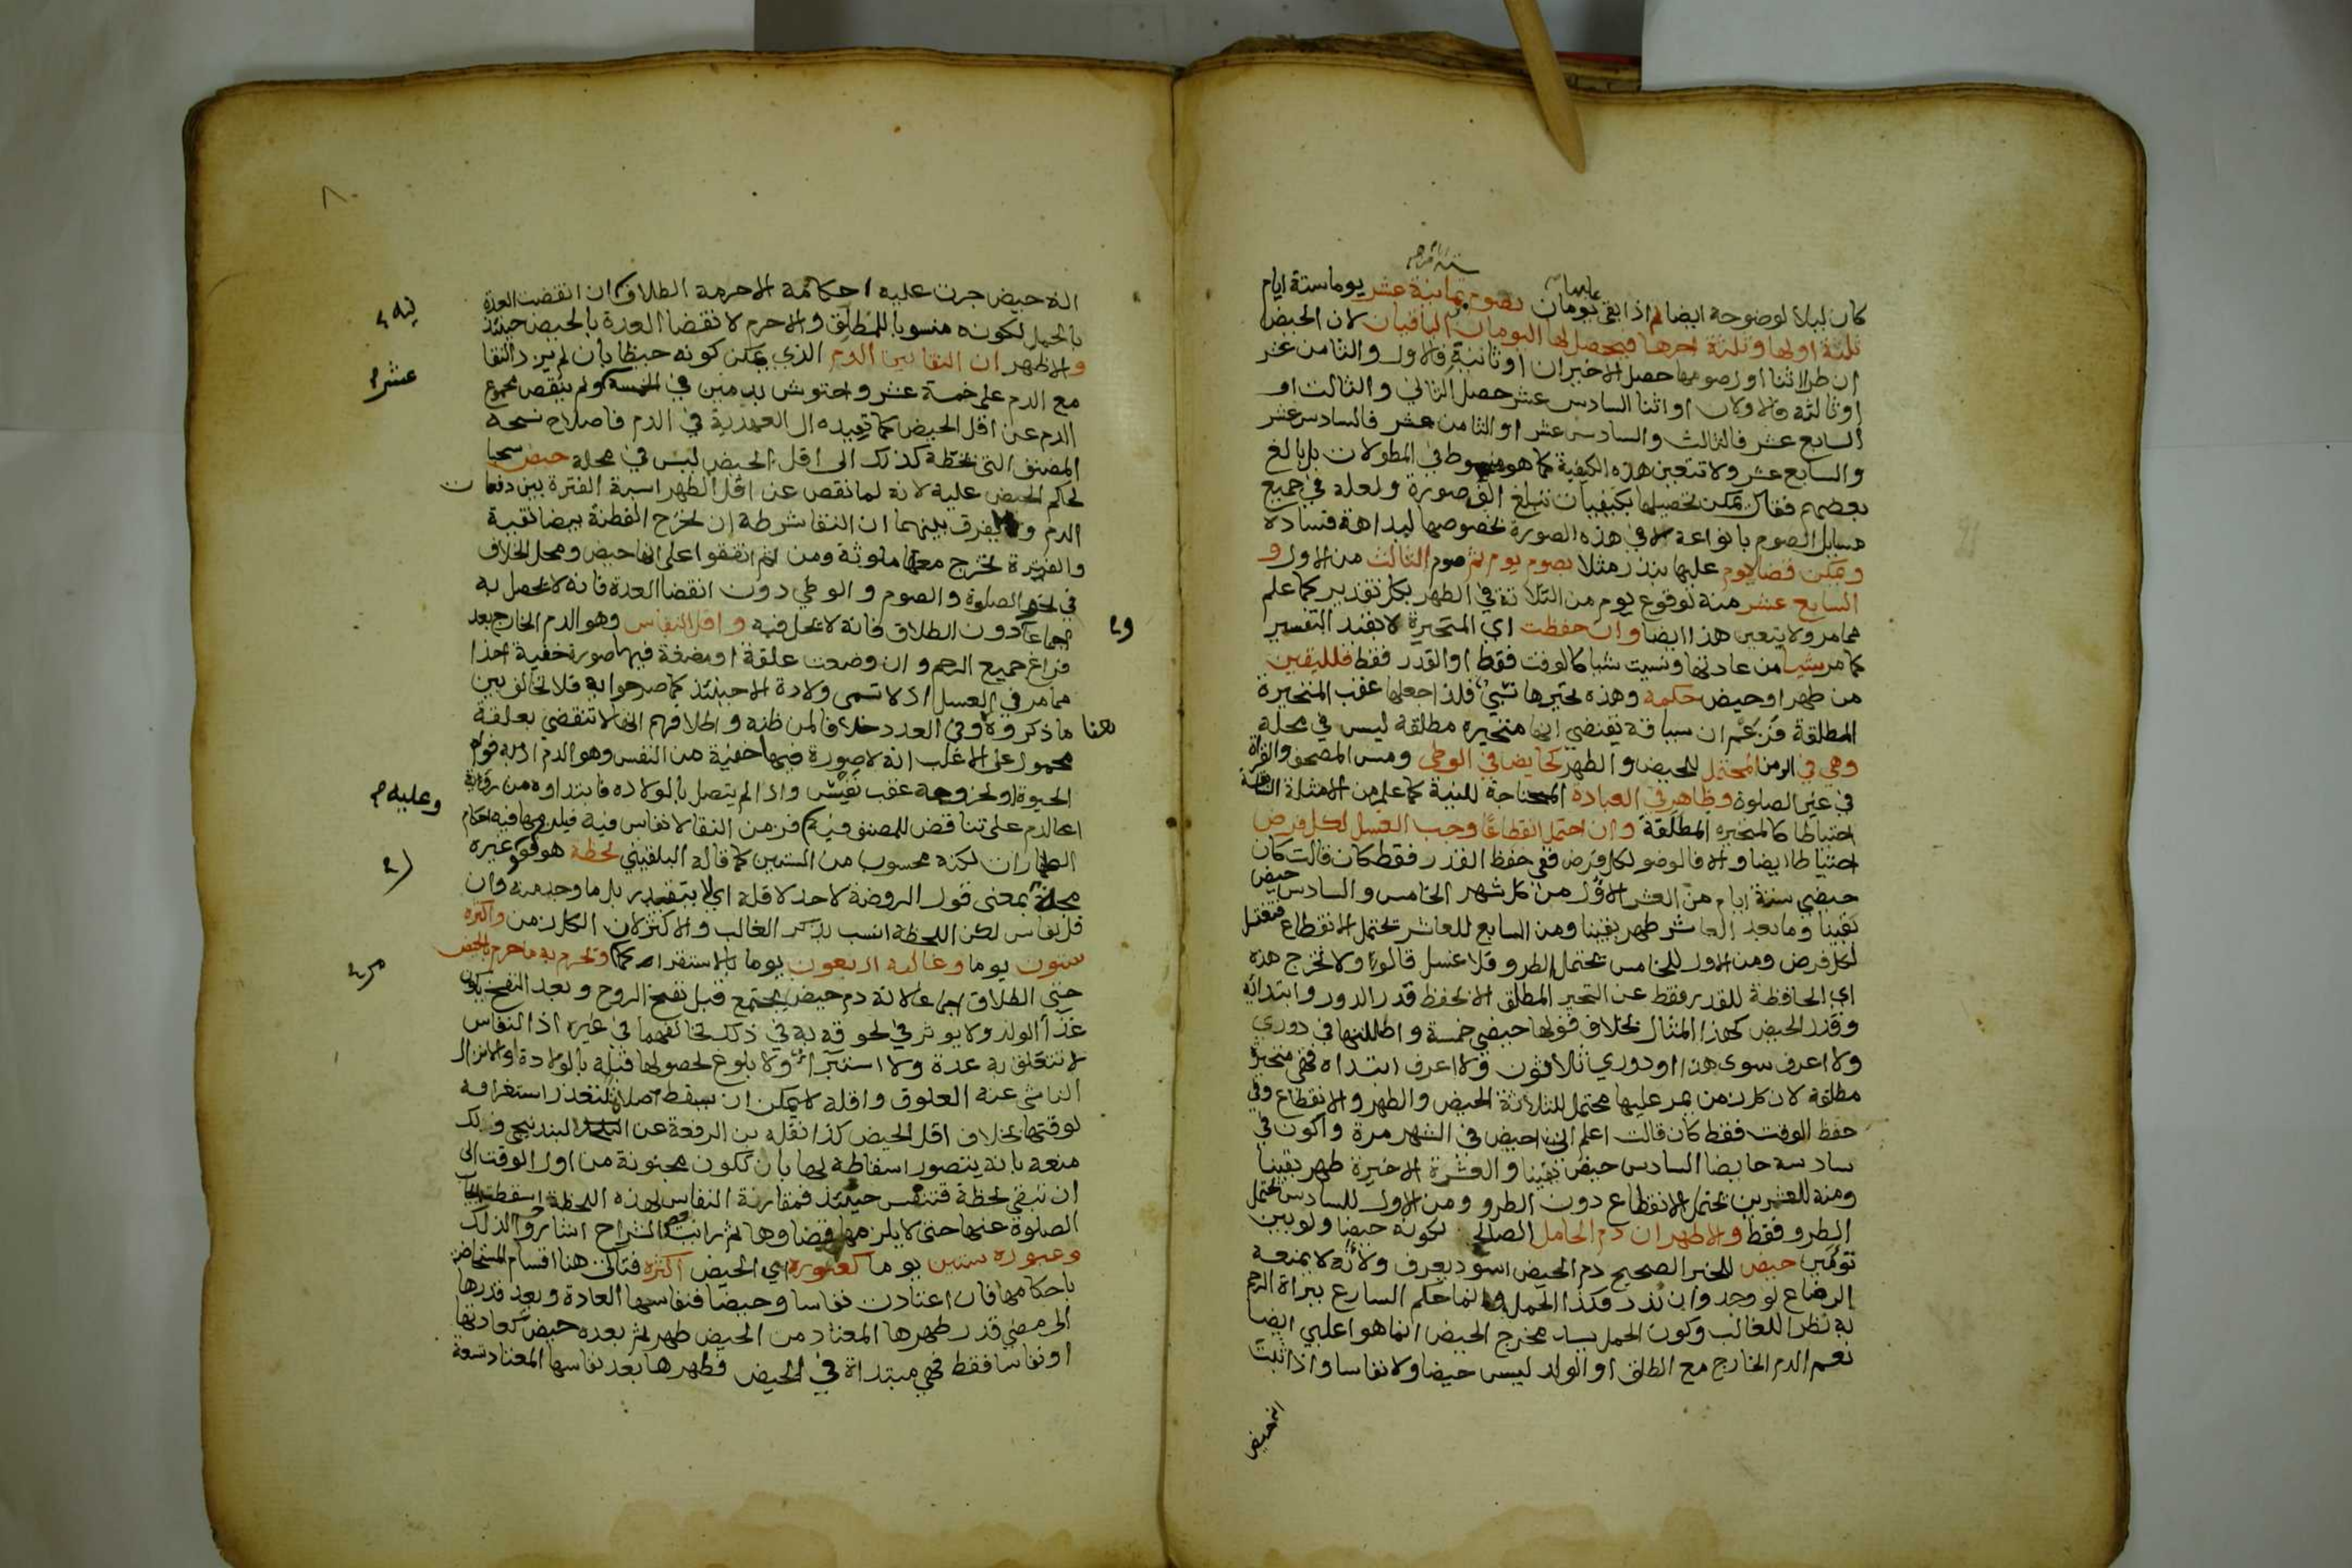 كان ليلا لوضوحه ايضا ثم اذا بقي يومان تصوم ثمانية عشر يوما ستة ايام
ثلثة اولها وثلثة اخرها فيحصل لها اليومان الباقيان لان الحيض
ان طرا اثنا اول صومها حصل الاخيران او ثانية فالاول والثامن عشر
او ثالثه فالاولان او اثنا السادس عشر حصل الثاني والثالث او
السابع عشر فالثالث والسادس عشر او الثامن عشر فالسادس عشر
والسابع عشر ولا تتعين هذه الكيفية كما هو مبسوط في المطولات بل بالغ
بعضهم فقال يمكن تحصيلها بكيفيات تبلغ الف صورة ولعله في جميع
مسايل الصوم بانواعه لا في هذه الصورة بخصوصها لبداهة فساده
ويمكن قضا يوم عليها بنذر مثلا بصوم يوم ثم صوم الثالث من الاول و
السابع عشر منه لوقوع يوم من الثلاثة في الطهر بكل تقدير كما علم
مما مر ولا يتعين هذا ايضا وان حفظت اي المتحيرة لا بقيد التفسير
كما مر شيا من عادتها ونسيت شيا كالوقت فقط او القدر فقط فلليقين
من طهر او حيض حكمه وهذه تحيرها نسبي فلذا جعلها عقب المتحيرة
المطلقة فزعم ان سياقه يقتضي انها متحيره مطلقة ليس في محله
وهي في الزمن المحتمل للحيض والطهر كحايض في الوطي ومس المصحف والقراة
في غير الصلوة وطاهر في العبادة المحتاجة للنية كما علم من الامثلة السابقة
احتياطا كالمتحيره المطلقة وان احتمل انقطاعا وجب الغسل لكل فرض
احتياطا ايضا والا فالوضو لكل فرض ففي حفظ القدر فقط كان قالت كان
حيضي ستة ايام من العشر الاول من كل شهر الخامس والسادس حيض
يقينا وما بعد العاشر طهر يقينا ومن السابع للعاشر تحتمل الانقطاع فتغتسل
لكل فرض ومن الاول للخامس تحتمل الطرو فلا غسل قالوا ولا تخرج هذه
اي الحافظة للقدر فقط عن التحير المطلق الا بحفظ قدر الدور وابتدائه
وقدر الحيض كهذا المثال بخلاف قولها حيضي خمسة واظللتها في دوري
ولا اعرف سوى هذا او دوري ثلاثون ولا اعرف ابتداه فهي متحيرة
مطلقة لان كل زمن يمر عليها محتمل للثلاثة الحيض والطهر والانقطاع وفي
حفظ الوقت فقط كان قالت اعلم اني احيض في الشهر مرة واكون في
سادسه حايضا السادس حيض يقينا والعشرة الاخيرة طهر يقينا
ومنه للعشرين تحتمل الانقطاع دون الطرو ومن الاول للسادس تحتمل
الطرو فقط والاظهر ان دم الحامل الصالح لكونه حيضا ولو بين
توئمين حيض للخبر الصحيح دم الحيض اسود يعرف ولانه لا يمنعه
الرضاع لو وجد وان ندر فكذا الحمل وانما حكم الشارع ببراة الرحم
به نظرا للغالب وكون الحمل يسد مخرج الحيض انما هو اغلبي ايضا
نعم الدم الخارج مع الطلق او الولد ليس حيضا ولا نفاسا واذا ثبت
انه حيض
انه حيض جرت عليه احكامه الا حرمة الطلاق ان انقضت العدة
بالحمل لكونه منسوبا للمطلق والا حرم لا نقضا العدة بالحيض حينئذ
والاظهر ان النقا بين الدم الذي يمكن كونه حيضا بان لم يزد النقا
مع الدم على خمسة عشر واحتوش بدمين في الخمسة ولم ينقص مجموع
عشر
الدم عن اقل الحيض كما تفيده ال العهدية في الدم فاصلاح نسخه
المصنف التي بخطه كذلك الى اقل الحيض ليس في محله حيض سحبا
لحكم الحيض عليه لانه لما نقص عن اقل الطهر اشبه الفترة بين دفعات
الدم ويفرق بينهما ان النقا شرطه ان تخرج القطنة بيضا نقية
والفترة تخرج معها ملوثة ومن ثم اتفقوا على انها حيض ومحل الخلاف
في نحو الصلوة والصوم والوطي دون انقضا العدة فانه لا يحصل به
اجماعا دون الطلاق فانه لا يحل فيه واقل النفاس وهو الدم الخارج بعد
فراغ جميع الرحم وان وضعت علقة او مضغة فيها صورة خفية اخذا
مما مر في الغسل اذ لا تسمى ولادة الا حينئذ كما صرحوا به فلا تخالف بين
ما ذكروه هنا وفي العدد خلافا لمن ظنه واطلاقهم انها لا تنقضي بعلقة
محمول على الاغلب انه لا صورة فيها خفية من النفس وهو الدم اذ به قوام
الحيوة او لخروجه عقب نفس واذا لم يتصل بالولاده فابتداوه من رؤية
وعليه
الدم على تناقض للمصنف فيه فزمن النقا لا نفاس فيه فيلزمها فيه احكام
الطهارات لكنه محسوب من الستين كما قاله البلقيني لحظة هو كقول غيره
مجة بمعنى قول الروضة لا حد لاقله اي لا يتقدر بل ما وجد منه وان
قل نفاس لكن اللحظة انسب بذكر الغالب والاكثر لان الكل زمن واكثره
ستون يوما وغالبه اربعون يوما بالاستقرا ويحرم به ما حرم بالحيض
حتى الطلاق اجماعا لانه دم حيض يجتمع قبل نفخ الروح وبعد النفخ يكون
غذا الولد ولا يوثر في لحوقه به في ذلك تخالفهما في غيره اذ النفاس
لا تتعلق به عدة ولا استبرا ولا بلوغ لحصولها قبله بالولادة او الانزال
الناشي عنه العلوق واقله لا يمكن ان يسقط صلاة لتعذر استغراقه
لوقتها بخلاف اقل الحيض كذا نقله بن الرفعة عن البندنيجي ولك
منعه بانه يتصور اسقاطه لها بان تكون مجنونة من اول الوقت الى
ان تبقى لحظة فتنفس حينئذ فمقارنة النفاس لهذه اللحظة اسقطت ايجاب
الصلوة عنها حتى لا يلزمها قضاوها ثم رايت بعض الشراح اشاروا لذلك
وعبوره ستين يوما كعبوره اي الحيض اكثره فتاتي هنا اقسام المستحاضة
باحكامها فان اعتادت نفاسا وحيضا فنفاسها العادة وبعد قدرها
الى مضي قدر طهرها المعتاد من الحيض طهر ثم بعده حيض كعادتها
او نفاسا فقط فهي مبتداة في الحيض فطهرها بعد نفاسها المعتاد تسعة